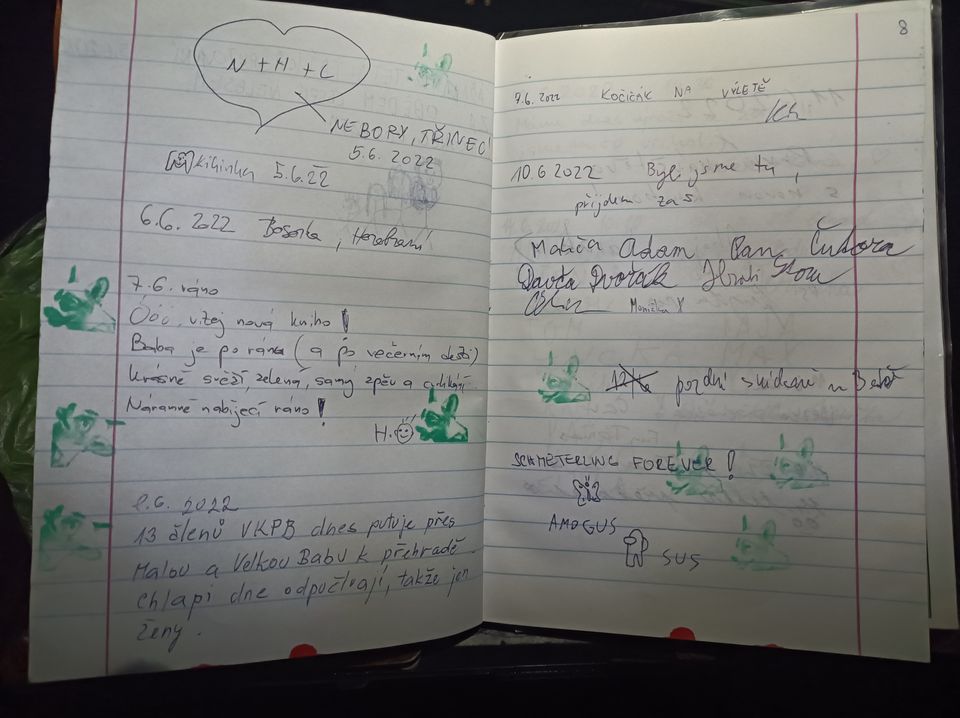 N + H + C
NEBORY, TŘINEC!
5.6. 2022
Kikinka 5.6.22
6.6. 2022 Bosorka,
7.6. ráno
Óóó, vítej nová kniho!
Baba je po ránu (a po večerním dešti)
krásně svěží, zelená, samý zpěv a cvrlikání.
Náramně nabíjecí ráno!
H.
8.6. 2022
13 členů VKPB dnes putuje přes
Malou a Velkou Babu k přehradě.
Chlapi dne odpočívají, takže jen
ženy.
8
7.6.2022 KOČIČÁK NA VÝLETĚ
10.6 2022 Byli jsme tu,
přijdem zas.
Maťa Adam Pan Čubora
Davča Dvořák
Monička
pozdní snídaně na Babě
SCHMETERLING FOREVER!
AMOGUS
SUS